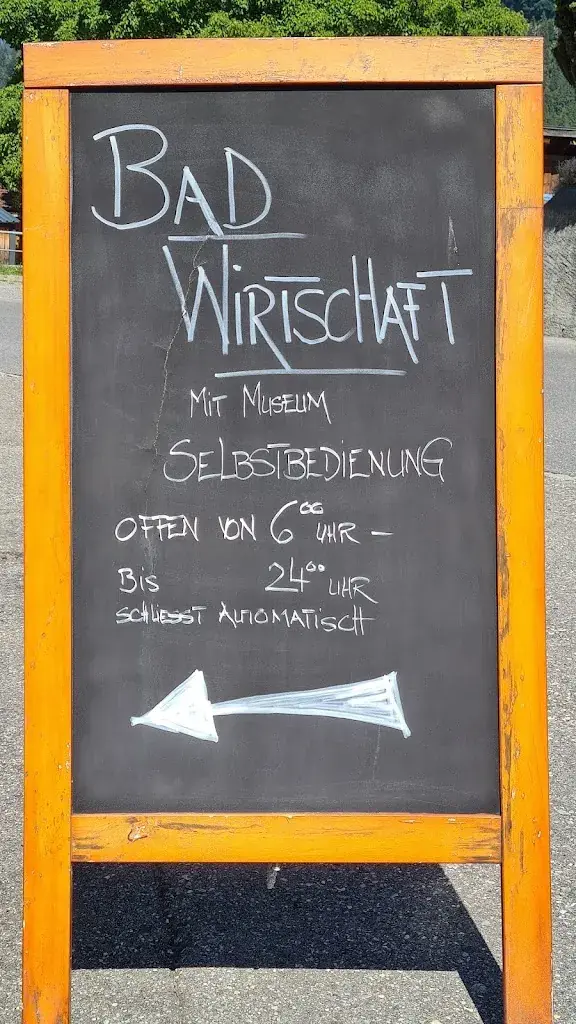 BAD
WIRTSCHAFT
MIT MUSEUM
SELBSTBEDIENUNG
OFFEN VON 6⁰⁰ UHR –
BIS 24⁰⁰ UHR
SCHLIESST AUTOMATISCH